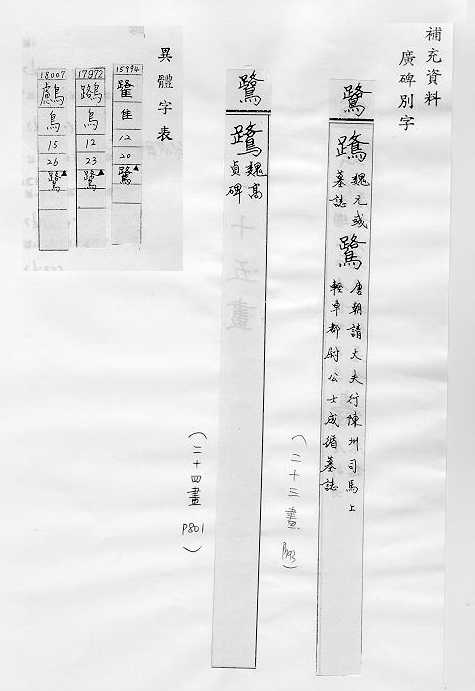 補充資料
廣碑別字
鷺
鷺 魏元彧墓誌
鷺 唐朝請大夫行陳州司馬上輕車都尉公士成循墓誌
(二十三畫 )
鷺
鷺 魏高貞碑
(二十四畫 P801)
異體字表
15994
隹
12
20
鷺▲
17972
鳥
12
23
鷺▲
18007
鳥
15
26
鷺▲